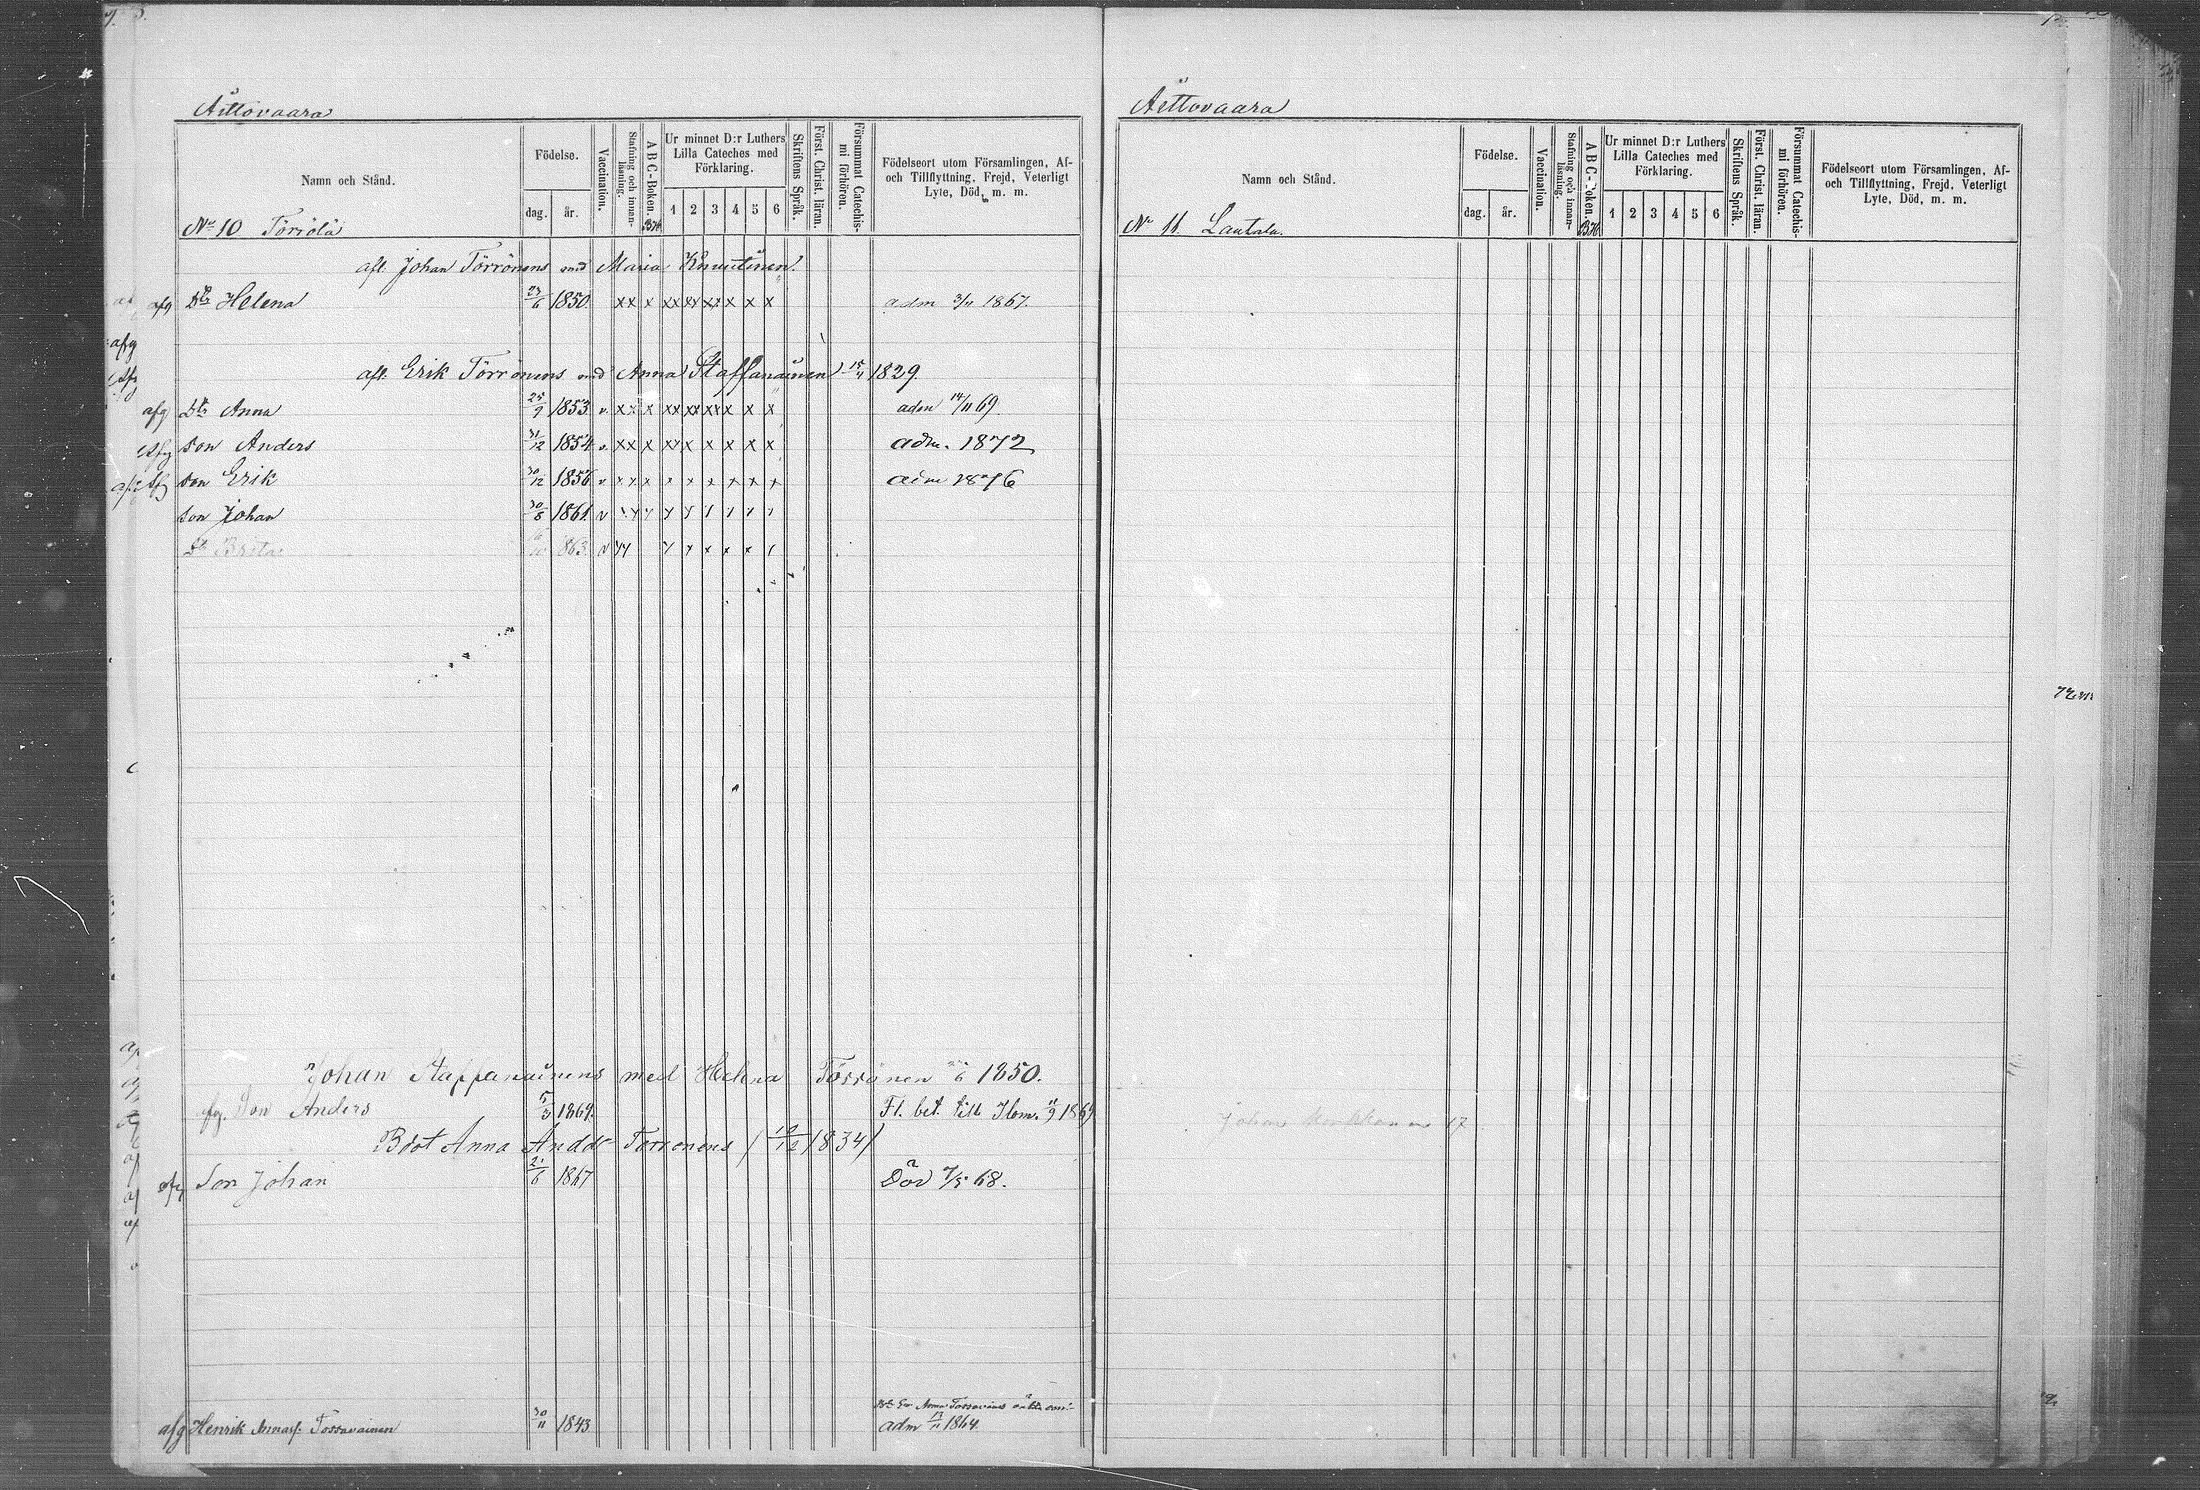 Aittovaara
Namn och Stånd.
Födelse.
dag. år.
Vaccination.
Stafning och innanläsning.
A B C-Boken.
Ur minnet D:r Luthers Lilla Cateches med Förklaring.
1 2 3 4 5 6
Skriftens Språk.
Först. Christ. läran.
Försummat Catechismi förhören.
Födelseort utom Församlingen, Af- och Tillflyttning, Frejd, Veterligt Lyte, Död, m. m.
No 10 Törrölä
afl. Johan Törrönens med Maria Knuutinen.
afg Dtr Helena 23/6 1850. xx x xx xx xx x x x adm 3/11 1867.
afg
afl. Erik Törrönens md Anna Staffanainen 15/11 1829.
afg Dtr Anna 25/9 1853 v. xx x xx xx xx x x x adm 14/11 69.
afg Son Anders 31/12 1854 v. xx x xx x x x x x adm. 1872
afg Son Erik 30/12 1856 v xx x x x x x x x adm 1876
Son Johan 30/8 1861. v
Dtr Brita 863. v
Johan Stappanainens med Helena Törrönen 6 1850.
afg. Son Anders 5/3 1869. Fl. bet. till Ilom. 11/9 1869
Brot Anna Andd Torronens (10/12 1834)
afg Son Johan 21/6 1867 Död 7/5 68.
Anna Tossavains
afg Henrik Annasf. Tossavainen 30/11 1843 adm 13/11 1864
Aittovaara
Namn och Stånd.
Födelse.
dag. år.
Vaccination.
Stafning och innanläsning.
A B C-Boken.
Ur minnet D:r Luthers Lilla Cateches med Förklaring.
1 2 3 4 5 6
Skriftens Språk.
Först. Christ. läran.
Försummat Catechismi förhören.
Födelseort utom Församlingen, Af- och Tillflyttning, Frejd, Veterligt Lyte, Död, m. m.
No 11. Lautala.
Johan